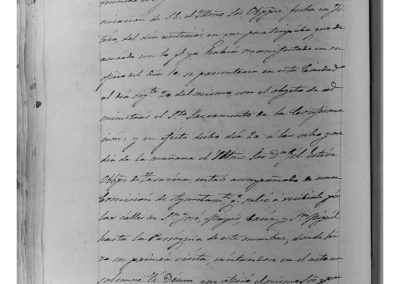 nicacion de S. E. Illma. Sor. Obispo, fecha en
del dia anterior, en que
acuerdo con lo q. ya habia manifestado en su
oficio del dia 10. se presentaria en esta Ciudad
el dia sigte. 20 del mismo, con el objeto de ad-
ministrar el Sto. Sacramento de la Confirma-
cion; y en efecto dicho dia 20, a las ocho y me-
dia de la mañana el Illmo. Sor. Dn. Gil Esteve
Obispo de Tarazona, entró acompañado de una
Comision de Ayuntamto. q. salió a recibirle por
las calles de Sn. José, y Sn. Miguel
hasta la Parroquia de este nombre, donde hi-
zo su primera visita, cantandose en el acto un
solemne Te Deum, que